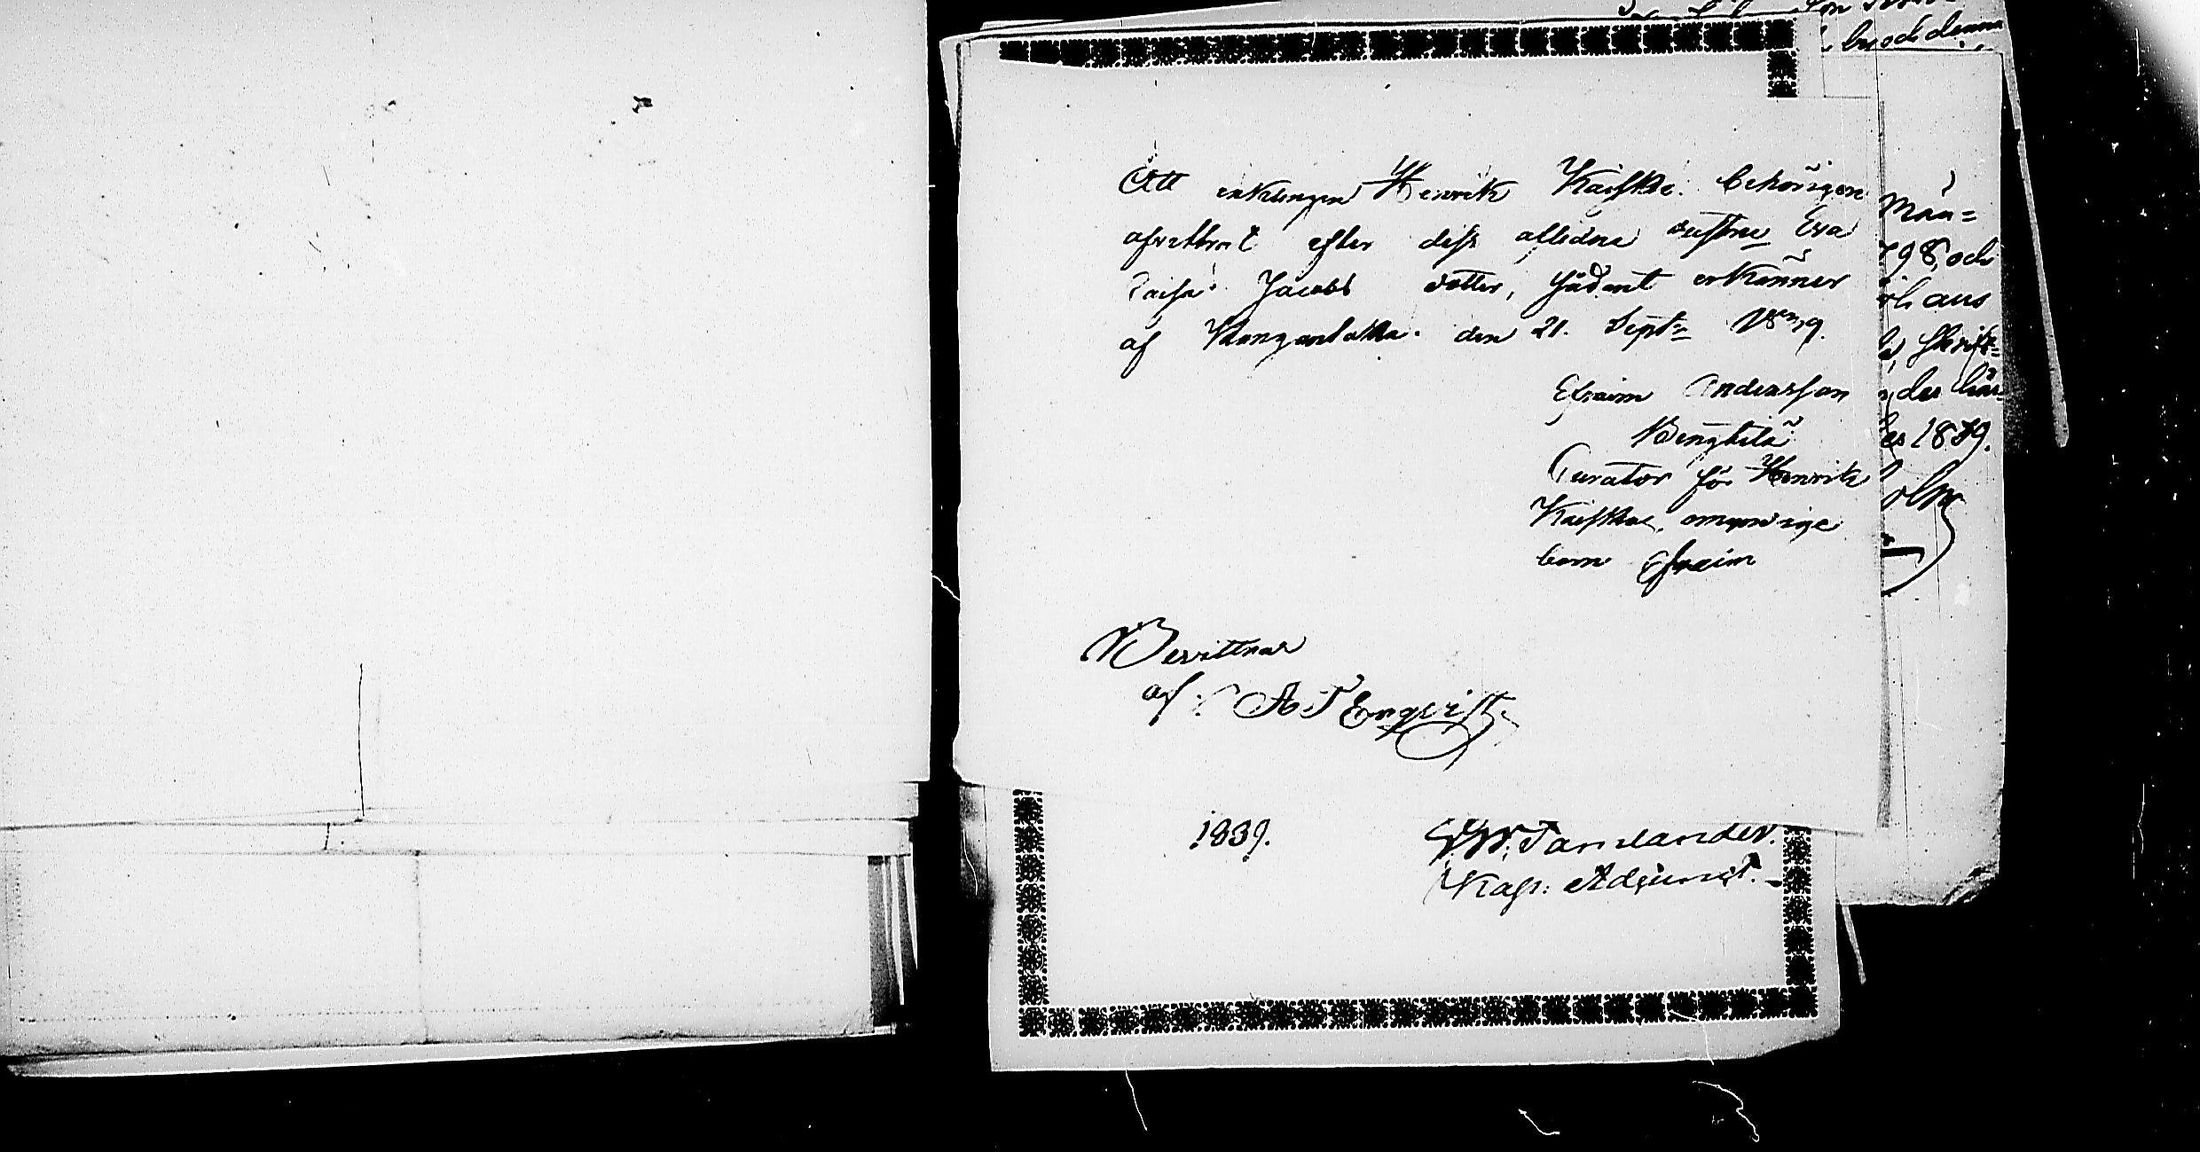 Att enklingen Henrik Kaiska behörigen
afvittrat efter dess aflidne hustru Eva
Caisa Jacobs dotter, sådant erkänner
af Kanganlaka den 21. Septr 1839.
Efraim Andersson
Bengtilä
Curator för Henrik
Kaiskas omyndige
barn Efraim
Bevittnar
af: A J Enqvist
1839.
Kapl: Adjunct.
och denna
Män=
798, och
aus
skrift=
der här=
1839.